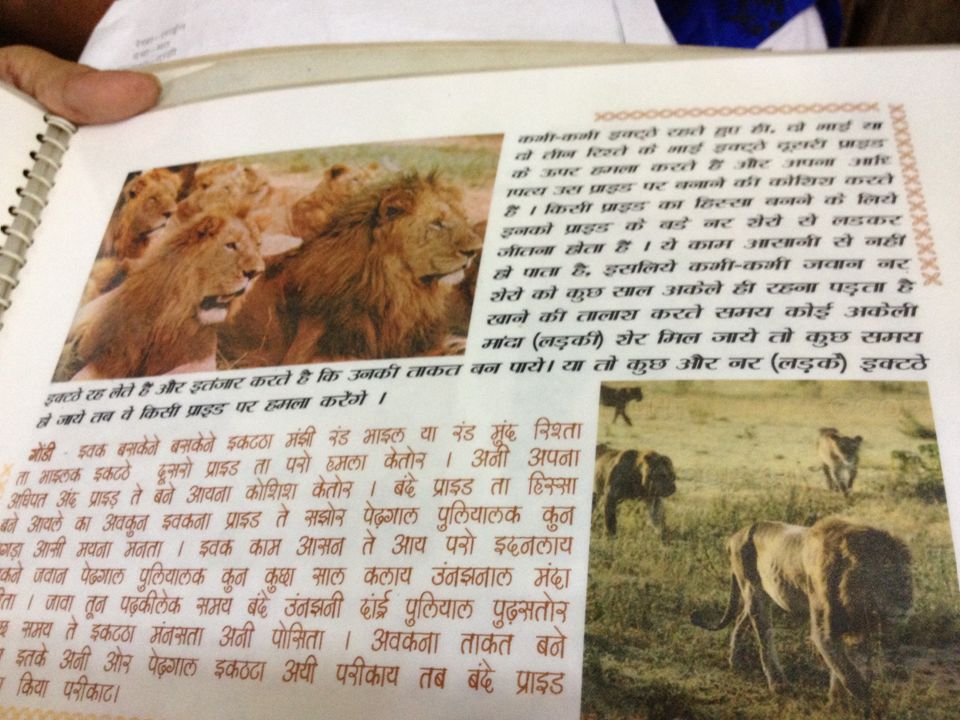 कभी-कभी इक्ट्ते रहते हुए ही, दो भाई या
दो तीन रिश्ते के भाई इक्ट्ते दूसरी प्राइड
के ऊपर हमला करते हैं और अपना आधि
पत्य उस प्राइड पर बनाने की कोशिश करते
हैं । किसी प्राइड का हिस्सा बनने के लिये
इनको प्राइड के बडे नर शेरो से लडकर
जीतना होता हैं । ये काम आसानी से नहीं
हो पाता है, इसलिये कभी-कभी जवान नर
शेरो को कुछ साल अकेले ही रहना पड़ता है
खाने की तालाश करते समय कोई अकेली
मांदा (लड़की) शेर मिल जाये तो कुछ समय
इक्टठे रह लेते हैं और इतंजार करते है कि उनकी ताकत बन पाये। या तो कुछ और नर (लड़के) इक्टठे
हो जाये तब वे किसी प्राइड पर हमला करेंगे ।
गोंडी - इवक बसकेने बसकेने इकटठा मंझी रंड भाइल या रंड मुंद रिश्ता
ता भाइलक इकटठे दूसरो प्राइड ता परो हमला केतोर । अनी अपना
अधिपत अंद प्राइड़ ते बने आयना कोशिश केतोर । बंदे प्राइड ता हिस्सा
बने आवले का अवकुन इवकना प्राइड ते सझोर पेढ़गाल पुलियालक कुन
आसी मयना मनता । इवक काम आसन ते आय परो इदनलाय
जवान पेढगाल पुलियालक कुन कुछा साल कलाय उंनझनाल मंदा
। जावा तून पढ़कीलेक समय बंदे उंनझनी दांई पुलियाल पुढ़सतोर
समय ते इकटठा मंनसता अनी पोसिता । अवकना ताकत बने
इतके अनी ओर पेढ़गाल इकठटा अयी परीकाय तब बंदे प्राइड
किया परीकाट।